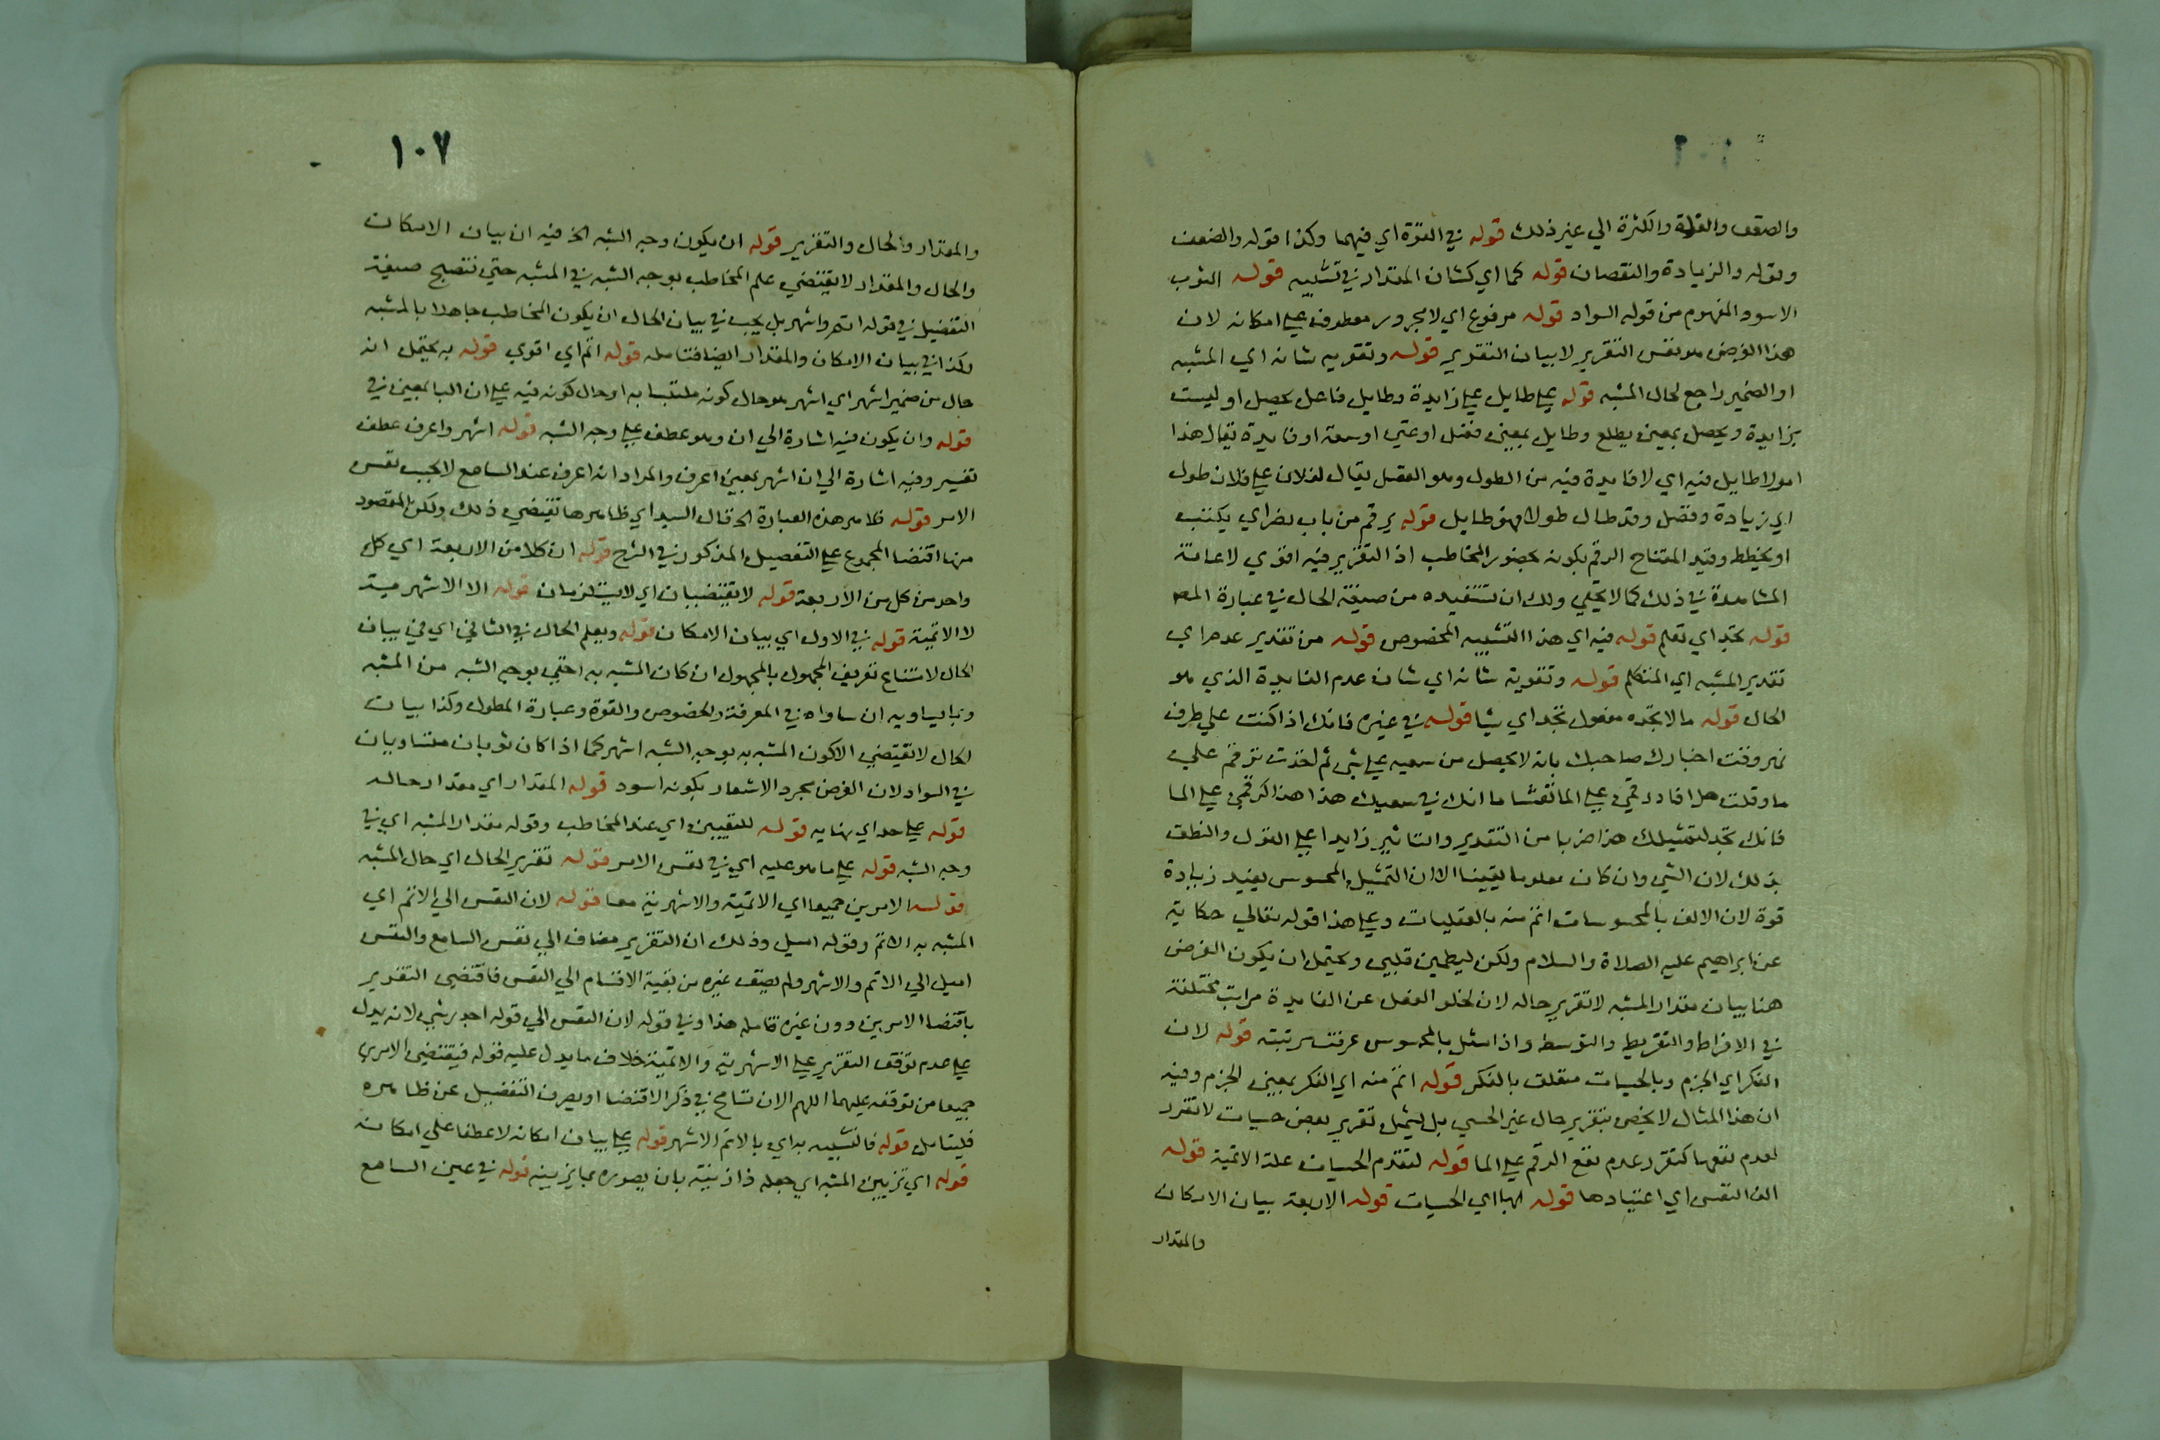 والضعف والقلة والكثرة الي غير ذلك قوله في القوة اي فيهما وكذا قوله والضعف
وقوله والزيادة والنقصان قوله كما اي كشان المقدار في تشبيه قوله الثوب
الاسود المفهوم من قوله السواد قوله مرفوع اي لا مجرور معطوف علي امكانه لان
هذا الغرض هو نفس التقرير لا بيان التقرير قوله وتقويه شانه اي المشبه
او الضمير راجع لحال المشبه قوله علي طايل علي زايدة وطايل فاعل يحصل او ليست
بزايدة ويحصل بمعني يطلع وطايل بمعني فضل او غني او سعة او فايدة يقال هذا
امر لا طايل فيه اي لا فايدة فيه من الطول وهو الفضل يقال لفلان علي فلان طول
اي زيادة وفضل وقد طال طولا فهو طايل قوله يرقم من باب نصر اي يكتب
او يخطط وقيد المفتاح الرقم بكونه بحضور المخاطب اذ التقرير فيه اقوي لاعانة
المشاهدة في ذلك كما لا يخفي ولك ان تستفيده من صيغة الحال في عبارة المص
قوله تجد اي تعلم قوله فيه اي هذا التشبيه المخصوص قوله من تقرير عدم اي
تقدير المشبه اي المتكلم قوله وتقوية شانه اي شان عدم الفايدة الذي هو
الحال قوله ما لا تجده مفعول تجد اي شيا قوله في غيره فانك اذا كنت علي طرف
نهر وقت اخبارك صاحبك بانه لا يحصل من سعيه علي شي ثم اخذت ترقم علي
ما وقلت هل افاد رقمي علي الما نقشا ما انك في سعيك هذا هذا كرقمي علي الما
فانك تجد لتمثيلك هذا ضربا من التقدير والتاثير زايدا علي القول والنطق
بذلك لان الشي وان كان معلوما يقينا الا ان التمثيل المحسوس يفيد زيادة
قوة لان الالف بالمحسوسات اتم منه بالعقليات وعلي هذا قوله تعالي حكاية
عن ابراهيم عليه الصلاة والسلام ولكن ليطمين قلبي ويحتمل ان يكون الغرض
هنا بيان مقدار المشبه لا تقرير حاله لان لخلو الفعل عن الفايدة مراتب مختلفة
في الافراط والتفريط والتوسط واذا مثل بالمحسوس عرفت مرتبته قوله لان
الفكر اي الجزم وبالحسيات متعلق بالفكر قوله اتم منه اي الفكر بمعني الجزم وفيه
ان هذا المثال لا يخص بتقرير حال غير الحسي بل يشمل تقرير بعض حسيات لا تقرر
لعدم نفعها كتقرر عدم نفع الرقم علي الما قوله لتقدم الحسيات علة الاتمية قوله
الف النفس اي اعتيادها قوله لها اي الحسيات قوله الاربعة بيان الامكان
والمقدار
١٠٧
والمقدار والحال والتقرير قوله ان يكون وجه الشبه الخ فيه ان بيان الامكان
والحال والمقدار لا يقتضي علم المخاطب بوجه الشبه في المشبه حتي تتضح صيغة
التفضيل في قوله اتم واشهر بل يجب في بيان الحال ان يكون المخاطب جاهلا بالمشبه
وكذا في بيان الامكان والمقدار ايضا فتامله قوله اتم اي اقوي قوله به يحتمل انه
حال من ضمير اشهر اي اشهر هو حال كونه ملتبسا به او حال كونه فيه علي ان البا بمعني في
قوله وان يكون فيه اشارة الي ان وهو عطف علي وجه الشبه قوله اشهر واعرف عطف
تفسير وفيه اشارة الي ان اشهر بمعني اعرف والمراد انه اعرف عند السامع لا بحسب نفس
الامر قوله ظاهر هذه العبارة الخ قال السيد اي ظاهرها تقتضي ذلك ولكن المقصود
منها اقتضا المجموع علي التفصيل المذكور في الشرح قوله ان كلا من الاربعة اي كل
واحد من كل من الأربعة قوله لا يقتضيان اي لا يستلزمان قوله الا الاشهرية
لا الاتمية قوله في الاول اي بيان الامكان قوله ويعلم الحال في الثاني اي في بيان
الحال لامتناع تعريف المجهول بالمجهول ان كان المشبه به اخفي بوجه الشبه من المشبه
وبما يساويه ان ساواه في المعرفة والخصوص والقوة وعبارة المطول وكذا بيان
الحال لا تقتضي الا كون المشبه به بوجه الشبه اشهر كما اذا كان ثوبان متساويان
في السواد لان الغرض مجرد الاشعار بكونه اسود قوله المقدار اي مقدار حاله
قوله علي حد اي نهايه قوله للتعيين اي عند المخاطب وقوله مقدار المشبه اي في
وجه الشبه قوله علي ما هو عليه اي في نفس الامر قوله تقرير الحال اي حال المشبه
قوله الامرين جميعا اي الاتمية والاشهرية معا قوله لان النفس الي الاتم اي
المشبه به الاتم وقوله اميل وذلك ان التقرير مضاف الي نفس السامع والنفس
اميل الي الاتم والاشهر ولم يضف غيره من بقية الاقسام الي النفس فاقتضي التقرير
باقتضا الامرين دون غيره تامله هذا وفي قوله لان النفس الي قوله اجدر شي لانه يدل
علي عدم توقف التقرير علي الاشهرية والاتمية خلاف ما يدل عليه قوله فيقتضي الامرين
جميعا من توقفه عليهما اللهم الا ان تسامح في ذكر الاقتضا او يصرف التفضيل عن ظاهره
فليتامل قوله فالتشبيه به اي بالاتم الاشهر قوله علي بيان امكانه لا عطفا علي امكانه
قوله اي تزيين المشبه اي جعله ذا زينة بان يصوره بما يزينه قوله في عين السامع